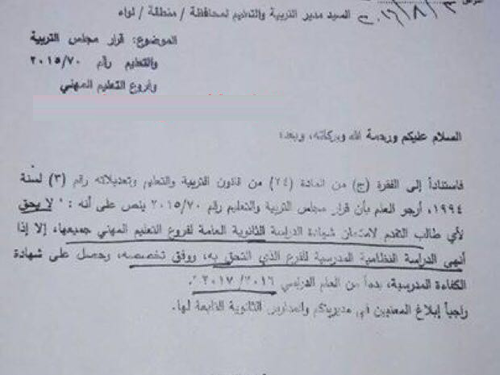 السيد مدير التربية والتعليم لمحافظة / منطقة / لواء
الموضوع: قرار مجلس التربية
والتعليم رقم ٢٠١٥/٧٠
وفروع التعليم المهني
السلام عليكم ورحمة الله وبركاته، وبعد؛
فاستناداً إلى الفقرة (ج) من المادة (٢٤) من قانون التربية والتعليم وتعديلاته رقم (٣) لسنة
١٩٩٤، أرجو العلم بأن قرار مجلس التربية والتعليم رقم ٢٠١٥/٧٠ ينص على أنه : " لا يحق
لأي طالب التقدم لامتحان شهادة الدراسة الثانوية العامة لفروع التعليم المهني جميعها، إلا إذا
أنهى الدراسة النظامية المدرسية للفرع الذي التحق به، ووفق تخصصه، وحصل على شهادة
الكفاءة المدرسية، بدءاً من العام الدراسي ٢٠١٧/٢٠١٦ ".
راجياً إبلاغ المعنيين في مديريتكم والمدارس الثانوية التابعة لها.